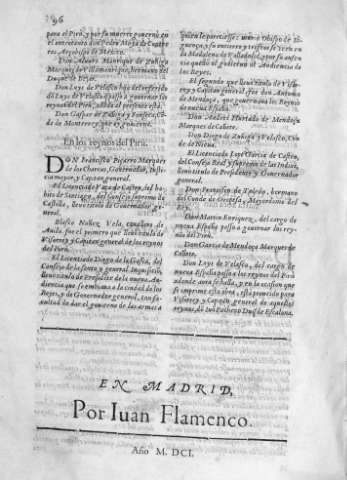 96
para el Pirù, y por su muerte governò en
el entretanto don Pedro Moya de Contreras
Arçobispo de Mexico.
Don Alvaro Manrique de Zuñiga
Marques de Villamanrique, hermano del
Duque de Bejar.
Don Luys de Velasco hijo del referido
don Luys de Velasco passò a governar los
reynos del Pirù, adonde al presente està.
Don Gaspar de Zuñiga y Fonseca, Conde
de Monterrey que oy govierna.
En los reynos del Piru.
DON Francisco Piçarro Marques
de los Charcas, Governador,
y Capitan general.
El Licenciado Vaca de Castro, del habito
de Santiago, del Consejo supremo de
Castilla, llevò titulo de Governador general.
Blasco Nuñez Vela, cavallero de
Avila fue el primero que llevò titulo de
Visorrey y Capitan general de los reynos
del Pirù.
El Licenciado Diego de la Gasca, del
Consejo de la santa y general Inquisicion,
llevò titulo de Presidente de la nueva Audiencia
que se embiava a la ciudad de los
Reyes, y de Governador general, con facultad
de dar el govierno de las armas a
quien le pareciesse: murio Obispo de Siguença,
y su entierro y
de Valladolid, y por su ausencia
quedò el govierno al Audiencia de
los Reyes.
El segundo que llevò titulo de Visorrey
y Capitan general fue don Antonio
de Mendoça, que governava los Reynos
de nueva España.
Don Andres Hurtado de Mendoça
Marques de Cañete.
Don Diego de Zuñiga y Velasco, Conde
de Nieva.
El Licenciado Lope Garcia de Castro,
del Consejo Real y supremo de las Indias,
llevò titulo de Presidente y Governador
general.
Don Francisco de Toledo, hermano
del Conde de Oropesa, Mayordomo del
Rey.
Don Martin Enriquez, del cargo de
nueva España passò a governar los reynos
del Pirù.
Don Garcia de Mendoça Marques de
Cañete.
Don Luys de Velasco, del cargo de
nueva España passò a los reynos del Pirù
adonde aora se halla, y en la ocasion que
se imprime esta obra, està proveido para
Visorrey y Capitan general de aquellos
reynos don Pacheco Duque de Escalona.
EN MADRID,
Por Iuan Flamenco.
Año M. DCI.